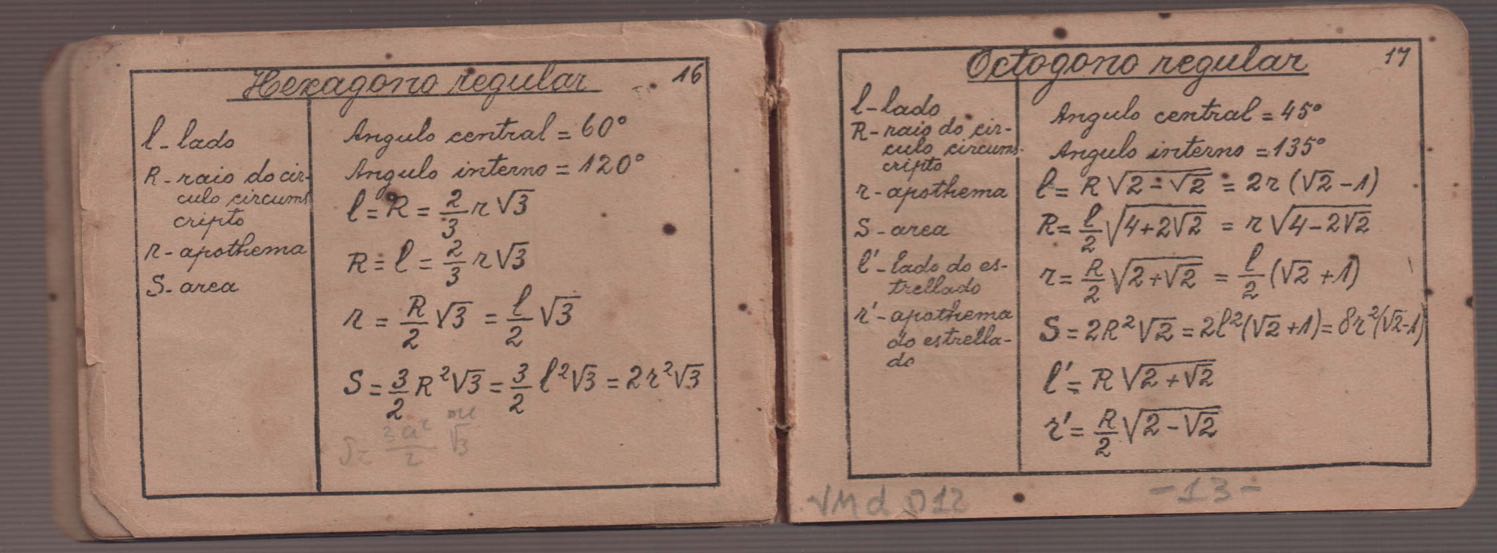 Hexagono regular 16
l - lado
R - raio do cir-
culo circums
cripto
r - apothema
S - area
Angulo central = 60°
Angulo interno = 120°
l = R = 2/3 r √3
R = l = 2/3 r √3
r = R/2 √3 = l/2 √3
S = 3/2 R² √3 = 3/2 l² √3 = 2r² √3
ou
S = 3a²/2 √3
Octogono regular 17
l - lado
R - raio do cir-
culo circums-
cripto
r - apothema
S - area
l' - lado do es-
trellado
r' - apothema
do estrella-
do
Angulo central = 45°
Angulo interno = 135°
l = R √(2 - √2) = 2r (√2 - 1)
R = l/2 √(4 + 2√2) = r √(4 - 2√2)
r = R/2 √(2 + √2) = l/2 (√2 + 1)
S = 2R² √2 = 2l² (√2 + 1) = 8r² (√2 - 1)
l' = R √(2 + √2)
r' = R/2 √(2 - √2)
-13-